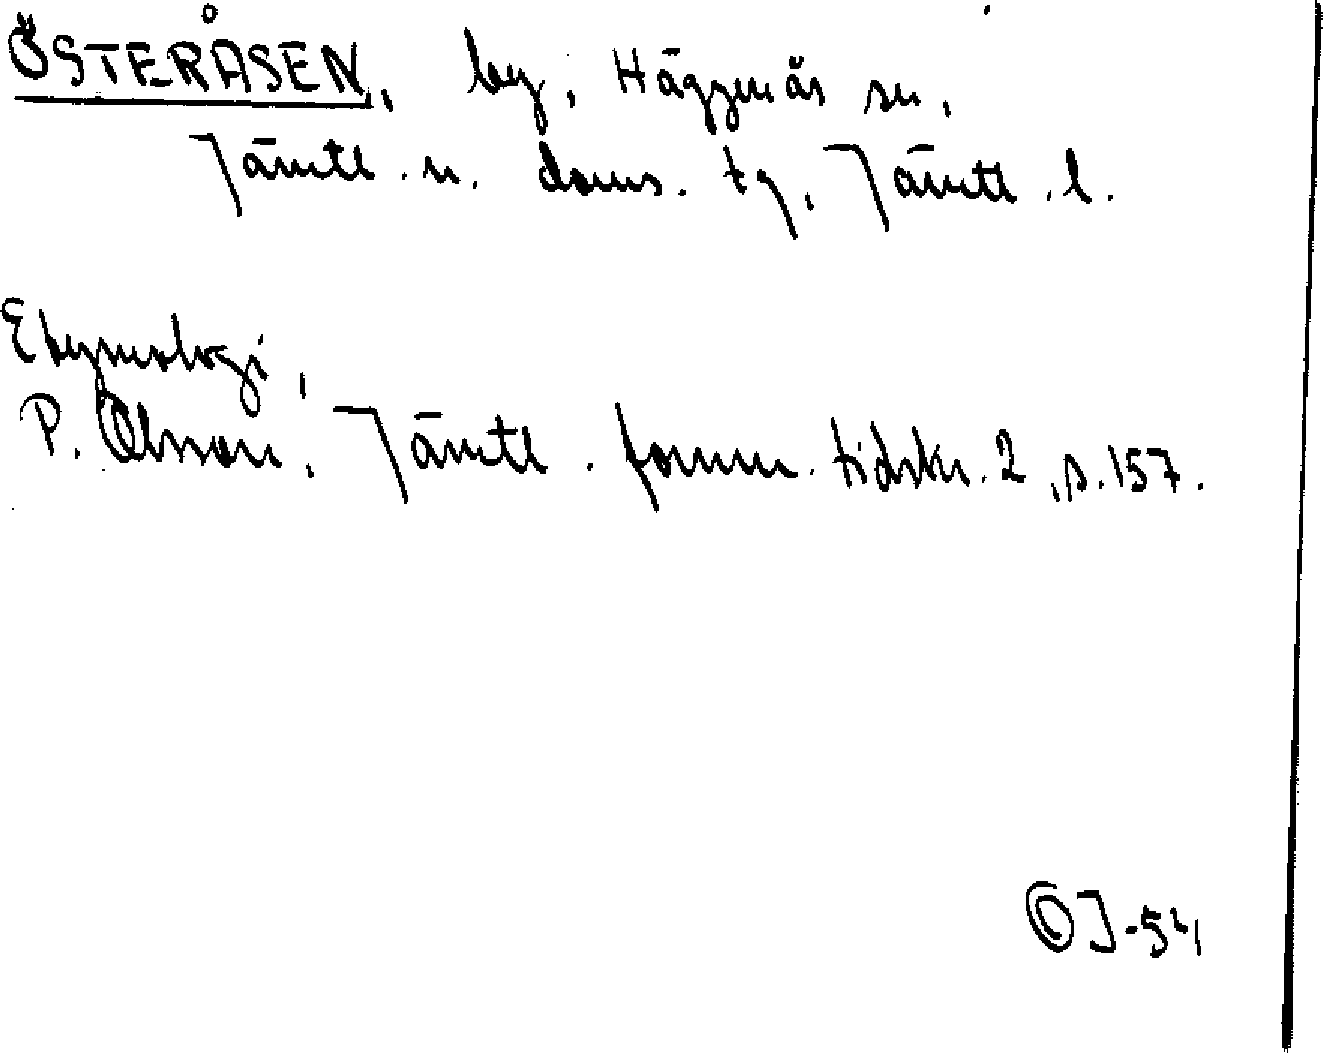 ÖSTERÅSEN, by, Häggenås sn,
Jämtl. n. doms. tg, Jämtl. l.
Etymologi,
P. Olsson, Jämtl. fornm. tidskr. 2, s. 157.
OJ-54